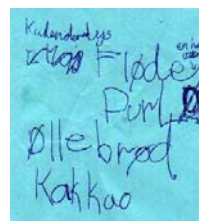 Kalenderlys
Fløde
Purl
Øllebrød
Kakkao